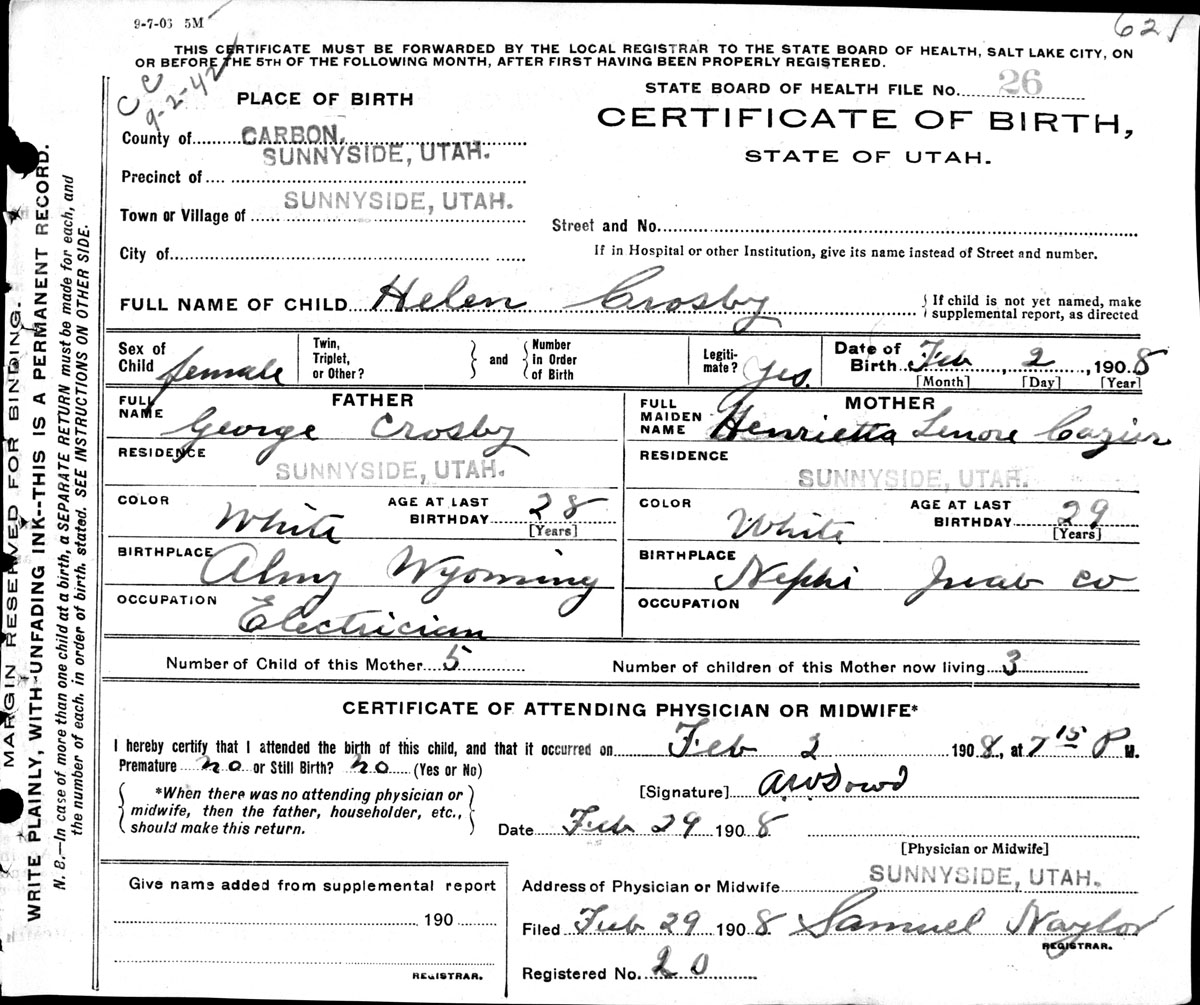 9-7-06 5M
621
THIS CERTIFICATE MUST BE FORWARDED BY THE LOCAL REGISTRAR TO THE STATE BOARD OF HEALTH, SALT LAKE CITY, ON
OR BEFORE THE 5TH OF THE FOLLOWING MONTH, AFTER FIRST HAVING BEEN PROPERLY REGISTERED.
CC
9-2-42
STATE BOARD OF HEALTH FILE No. 26
CERTIFICATE OF BIRTH,
STATE OF UTAH.
PLACE OF BIRTH
County of CARBON.
SUNNYSIDE, UTAH.
Precinct of
Town or Village of SUNNYSIDE, UTAH.
Street and No.
City of
If in Hospital or other Institution, give its name instead of Street and number.
FULL NAME OF CHILD Helen Crosby { If child is not yet named, make
supplemental report, as directed
Sex of Child female
Twin, Triplet, or Other? } and { Number in Order of Birth
Legiti-mate? Yes.
Date of Birth Feb, 2, 1908
[Month] [Day] [Year]
FATHER
FULL NAME George Crosby
RESIDENCE SUNNYSIDE, UTAH.
COLOR White AGE AT LAST BIRTHDAY 28
[Years]
BIRTHPLACE Almy Wyoming
OCCUPATION Electrician
MOTHER
FULL MAIDEN NAME Henrietta Lenore Cazier
RESIDENCE SUNNYSIDE, UTAH.
COLOR White AGE AT LAST BIRTHDAY 29
[Years]
BIRTHPLACE Nephi Juab co
OCCUPATION
Number of Child of this Mother 5 Number of children of this Mother now living 3
CERTIFICATE OF ATTENDING PHYSICIAN OR MIDWIFE*
I hereby certify that I attended the birth of this child, and that it occurred on Feb 2 1908, at 7 15 P M.
Premature no or Still Birth? no (Yes or No)
{ *When there was no attending physician or
midwife, then the father, householder, etc.,
should make this return. }
[Signature] AW Dowd
Date Feb 29 1908
[Physician or Midwife]
Give name added from supplemental report
190
REGISTRAR.
Address of Physician or Midwife SUNNYSIDE, UTAH.
Filed Feb 29 1908 Samuel Naylor
REGISTRAR.
Registered No. 20
MARGIN RESERVED FOR BINDING.
WRITE PLAINLY, WITH UNFADING INK--THIS IS A PERMANENT RECORD.
N. B.—In case of more than one child at a birth, a SEPARATE RETURN must be made for each, and
the number of each, in order of birth, stated. SEE INSTRUCTIONS ON OTHER SIDE.